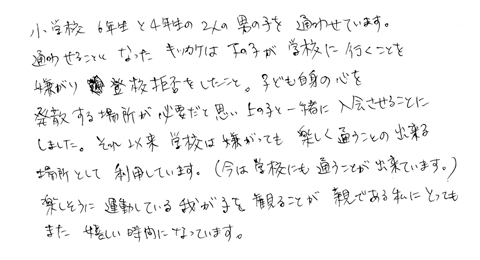 小学校 6年生と4年生の2人の男の子を 通わせています。
通わせることに なった キッカケは 下の子が 学校に 行くことを
嫌がり 登校拒否をしたこと。子ども自身の心を
発散する場所が必要だと思い上の子と一緒に 入会させることに
しました。それ以来 学校は嫌がっても 楽しく通うことの出来る
場所として 利用しています。(今は学校にも通うことが出来ています。)
楽しそうに 運動している我が子を 観ることが 親である私にとっても
また 嬉しい時間になっています。